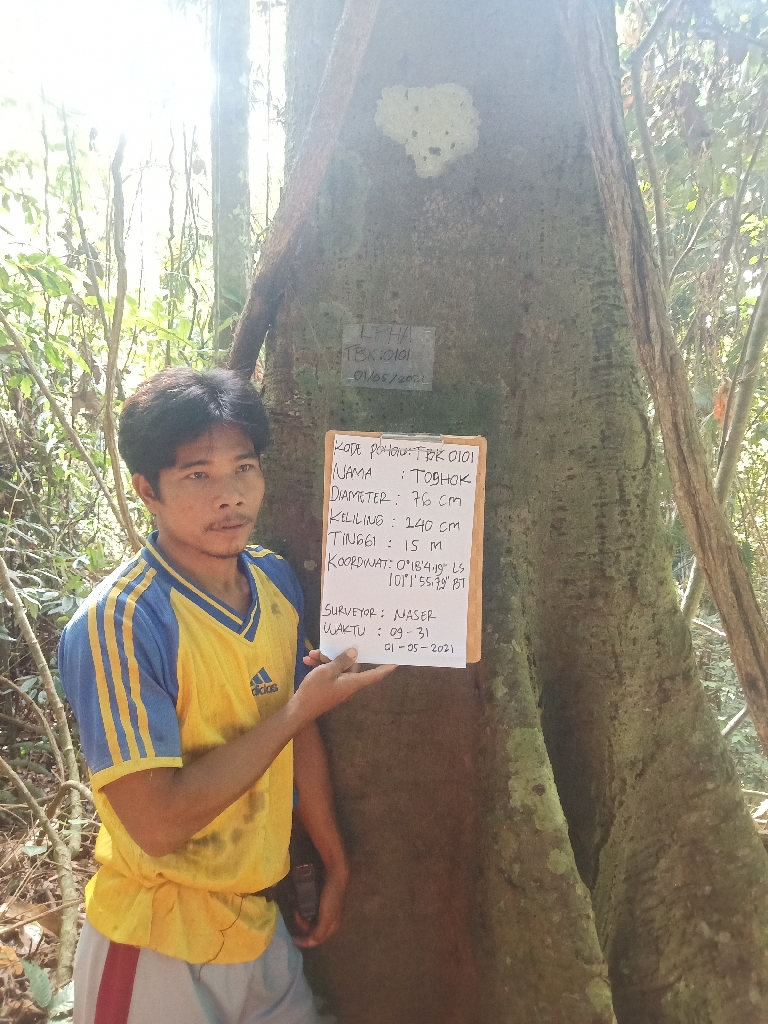 LPHA
TBK 0101
01/05/2021
KODE POHON: TBK 0101
NAMA : TOGHOK
DIAMETER : 76 CM
KELILING : 240 CM
TINGGI : 15 M
KOORDINAT: 0°18'4.19" LS
101°1'55.79" BT
SURVEYOR : NASER
WAKTU : 09-31
01-05-2021
adidas